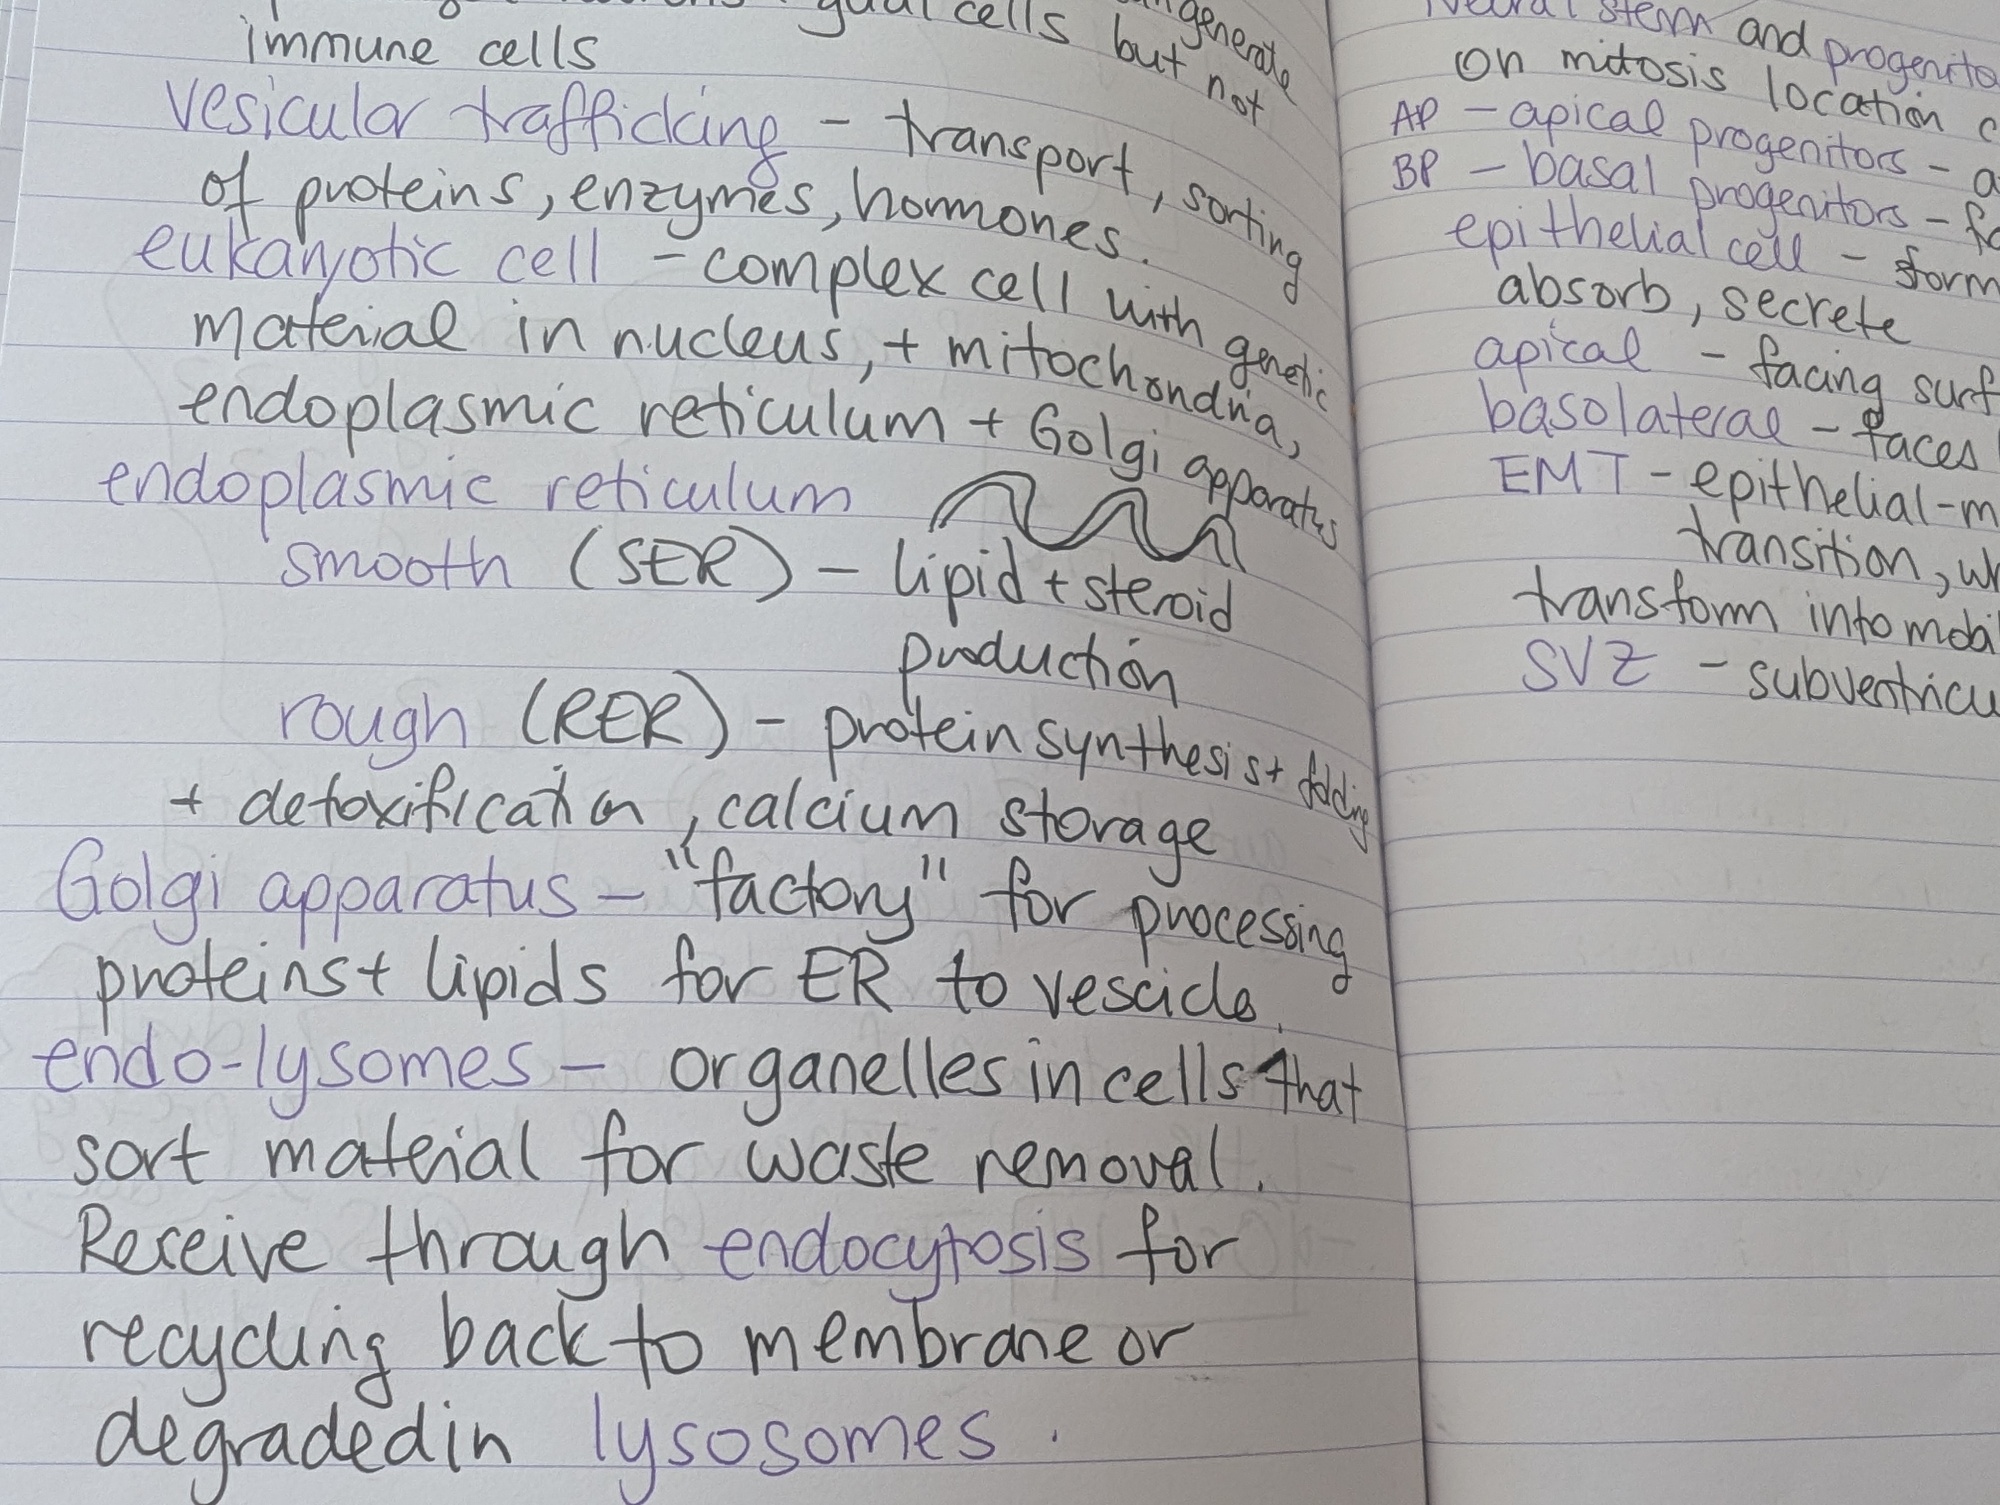 gual cells but not
generate
immune cells
vesicular trafficking – transport, sorting
of proteins, enzymes, hormones.
eukaryotic cell – complex cell with genetic
material in nucleus, + mitochondria,
endoplasmic reticulum + Golgi apparatus
endoplasmic reticulum
smooth (SER) – lipid + steroid
production
rough (RER) – protein synthesis + folding
+ detoxification, calcium storage
Golgi apparatus – "factory" for processing
proteins + lipids for ER to vescicle.
endo-lysomes – organelles in cells that
sort material for waste removal.
Receive through endocytosis for
recycling back to membrane or
degraded in lysosomes.
Neural stem and progenito
on mitosis location c
AP – apical progenitors – a
BP – basal progenitors – fo
epithelial cell – form
absorb, secrete
apical – facing surf
basolateral – faces
EMT – epithelial-m
transition, wh
transform into mobil
SVZ – subventricu